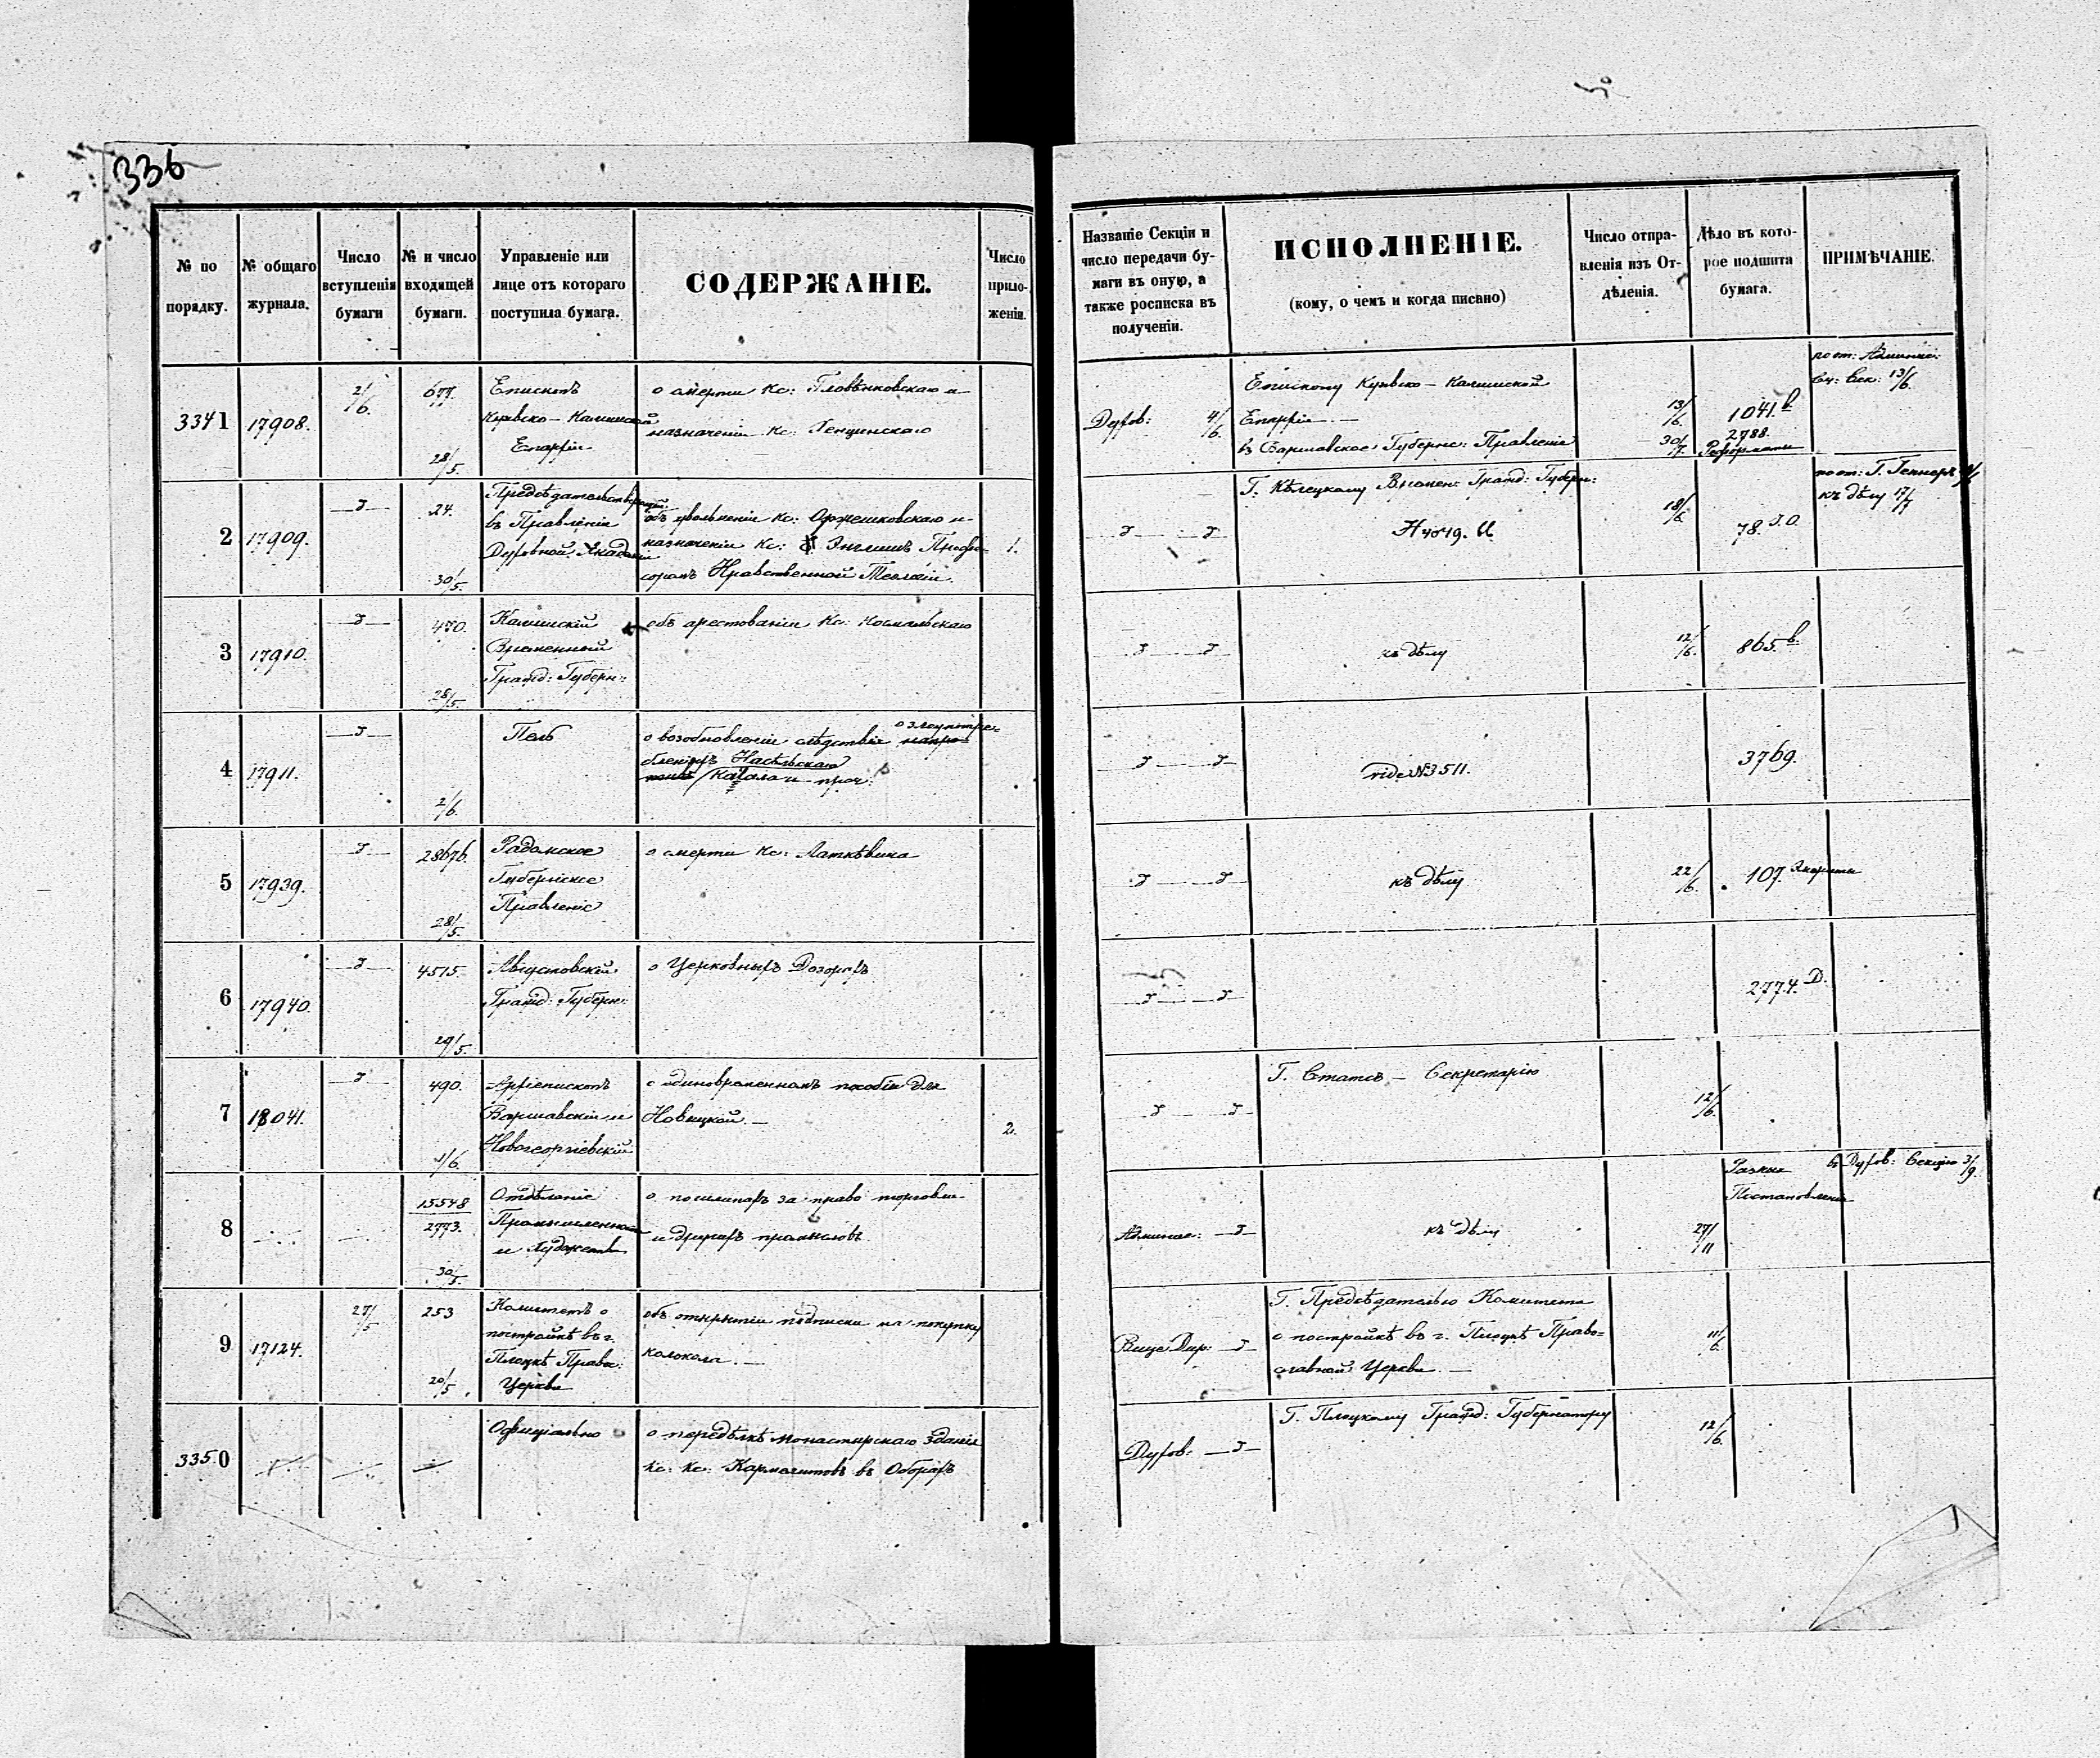 336
№ по порядку.
№ общаго журнала.
Число вступленія бумаги
№ и число входящей бумаги.
Управленіе или лице отъ котораго поступила бумага.
СОДЕРЖАНІЕ.
Число прило-
женія.
Названіе Секціи и
число передачи бу-
маги въ оную, а
также росписка въ
полученіи.
ИСПОЛНЕНІЕ.
(кому, о чемъ и когда писано)
Число отпра-
вленія изъ От-
дѣленія.
Дѣло въ кото-
рое подшита
бумага.
ПРИМѢЧАНІЕ.
3341
17908.
2/6.
677.
28/5.
Епископъ
Куявско-Калишской
Епархіи
о смерти Кс:
назначеніи Кс:
Духов: 4/6.
Епископу Куявско-Калишской
Епархіи
въ Варшавское Губернс: Правленіе
13/6.
30/7.
1041.
2788.
Реформаты
13/6.
2
17909.
24.
30/5.
Предсѣдательствующій
въ Правленіи
Духовной Академіи
объ увольненіи Кс: Оржешковскаго и
назначеніи Кс: Профес-
соромъ Нравственной Теологіи.
1.
Г. Кѣлецкому Времен: Гражд: Губерн:
18/6.
78.
къ дѣлу 17/7
3
17910.
470.
28/5.
Калишскій
Временный
Гражд: Губерн:
объ арестованіи Кс:
къ дѣлу
12/6.
865.
4
17911.
2/6.
о возобновленіи слѣдствія о злоупотре-
бленіяхъ
Кагала и проч:
vide №3511.
3769.
5
17939.
28676.
28/5.
Радомское
Губернское
Правленіе
о смерти Кс: Латкѣвича
къ дѣлу
22/6.
107.
6
17940.
4515.
29/5.
Августовскій
Гражд: Губерн:
о Церковныхъ Дозорахъ
2774. D.
7
18041.
490.
1/6.
Архіепископъ
Варшавскій и
Новогеоргіевскій
о единовременномъ пособіи для
Новицкой.
2.
Г. Статсъ-Секретарю
12/6.
8
15548
2773.
30/5.
Отдѣленіе
Промышленности
и Художествъ
о пошлинахъ за право торговли
и другихъ промысловъ
къ дѣлу
27/11
Разныя
Постановленія
въ Духов: Секцію 3/9.
9
17124.
27/5
253
20/5.
Комитетъ о
постройкѣ въ г.
Плоцкѣ Право:
Церкви
объ открытіи подписки на покупку
колокола.
Вице Дир:
Г. Предсѣдателю Комитета
о постройкѣ въ г. Плоцкѣ Право-
славной Церкви.
11/6.
3350
Офиціально
о передѣлкѣ монастырскаго зданія
Кс: Кс: Кармелитовъ въ Оборахъ
Духов:
Г. Плоцкому Гражд: Губернатору
12/6.